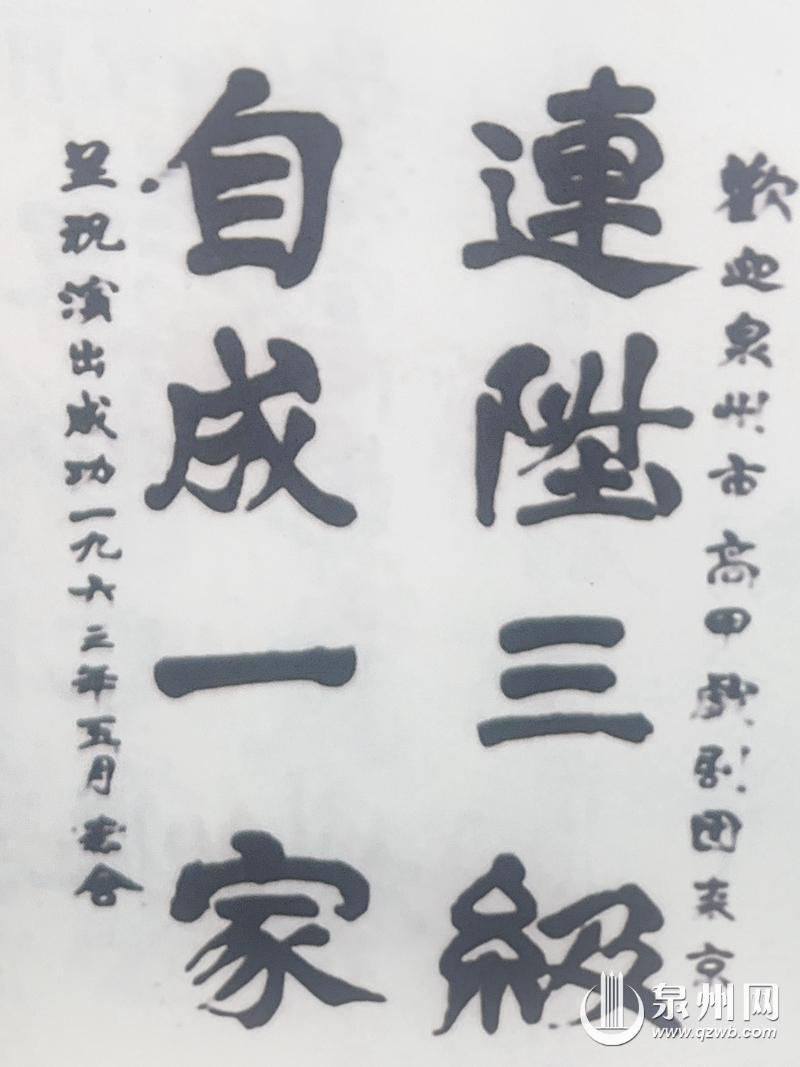 歡迎泉州市高甲戏剧团来京
連陞三級
自成一家
並祝演出成功一九六三年五月老舍
泉州网
www.qzwb.com